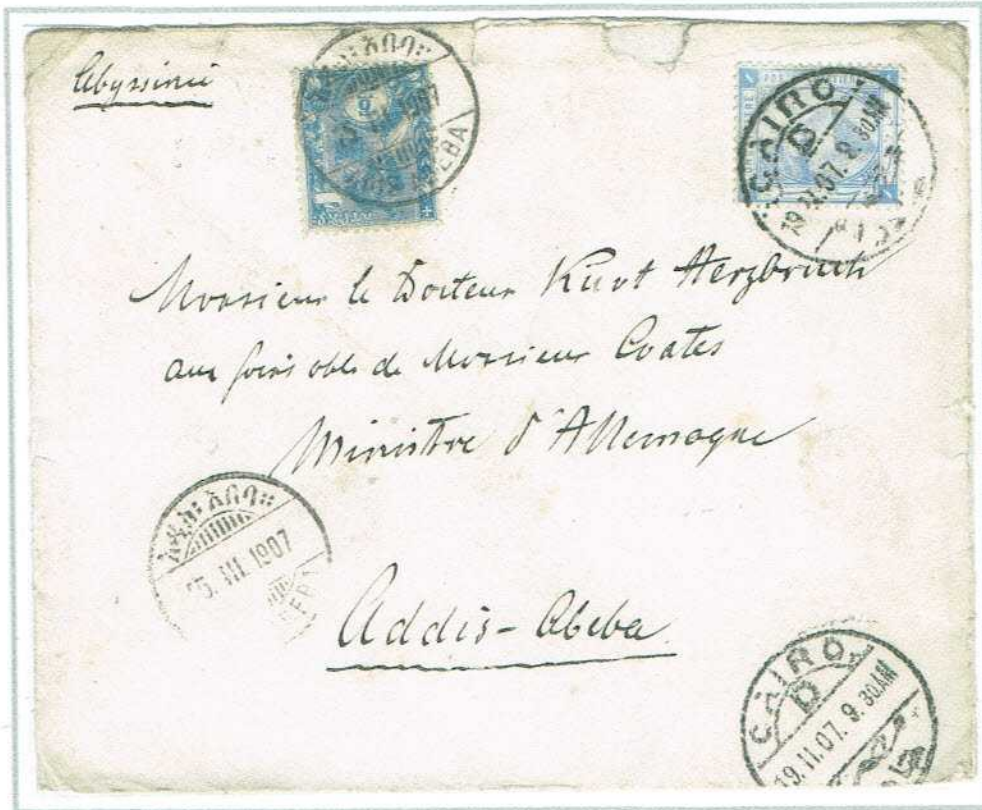 Abyssinie
አዲስ፡ አበባ።
1907
ADIS ABEBA
CAIRO
D
19.II.07.9.30AM
Monsieur le Docteur Kurt Herzbruch
aux soins obls de Monsieur Coates
Ministre d'Allemagne
አዲስ፡ አበባ።
III 1907
Addis-Abeba
CAIRO
D
19.II.07.9.30AM